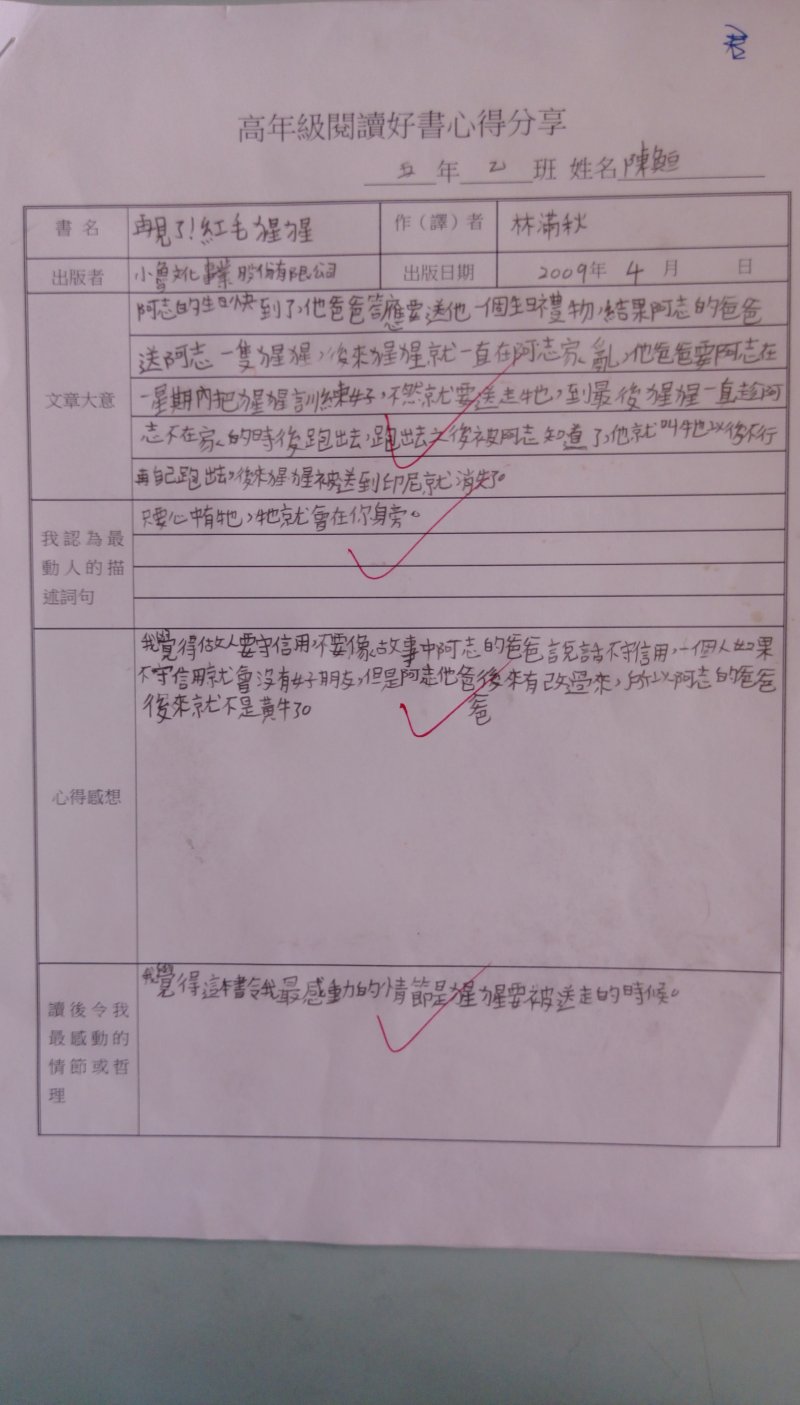 君
高年級閱讀好書心得分享
五年乙班 姓名陳
書名 再見了!紅毛猩猩 作(譯)者 林滿秋
出版者 小魯文化事業股份有限公司 出版日期 2009年 4 月 日
文章大意
阿志的生日快到了,他爸爸答應要送他一個生日禮物,結果阿志的爸爸
送阿志一隻猩猩,後來猩猩就一直在阿志家亂,他爸爸要阿志在
一星期內把猩猩訓練好,不然就要送走牠,到最後猩猩一直趁阿
志不在家的時後跑出去,跑出去之後被阿志知道了,他就叫牠以後不行
再自己跑出去,後來猩猩被送到印尼就消失了。
我認為最
動人的描
述詞句
只要心中有牠,牠就會在你身旁。
心得感想
我覺得做人要守信用,不要像故事中阿志的爸爸說話不守信用,一個人如果
不守信用就會沒有好朋友,但是阿志他爸爸後來有改過來,所以阿志的爸爸
後來就不是黃牛了。
讀後令我
最感動的
情節或哲
理
我覺得這本書令我最感動的情節是猩猩要被送走的時候。